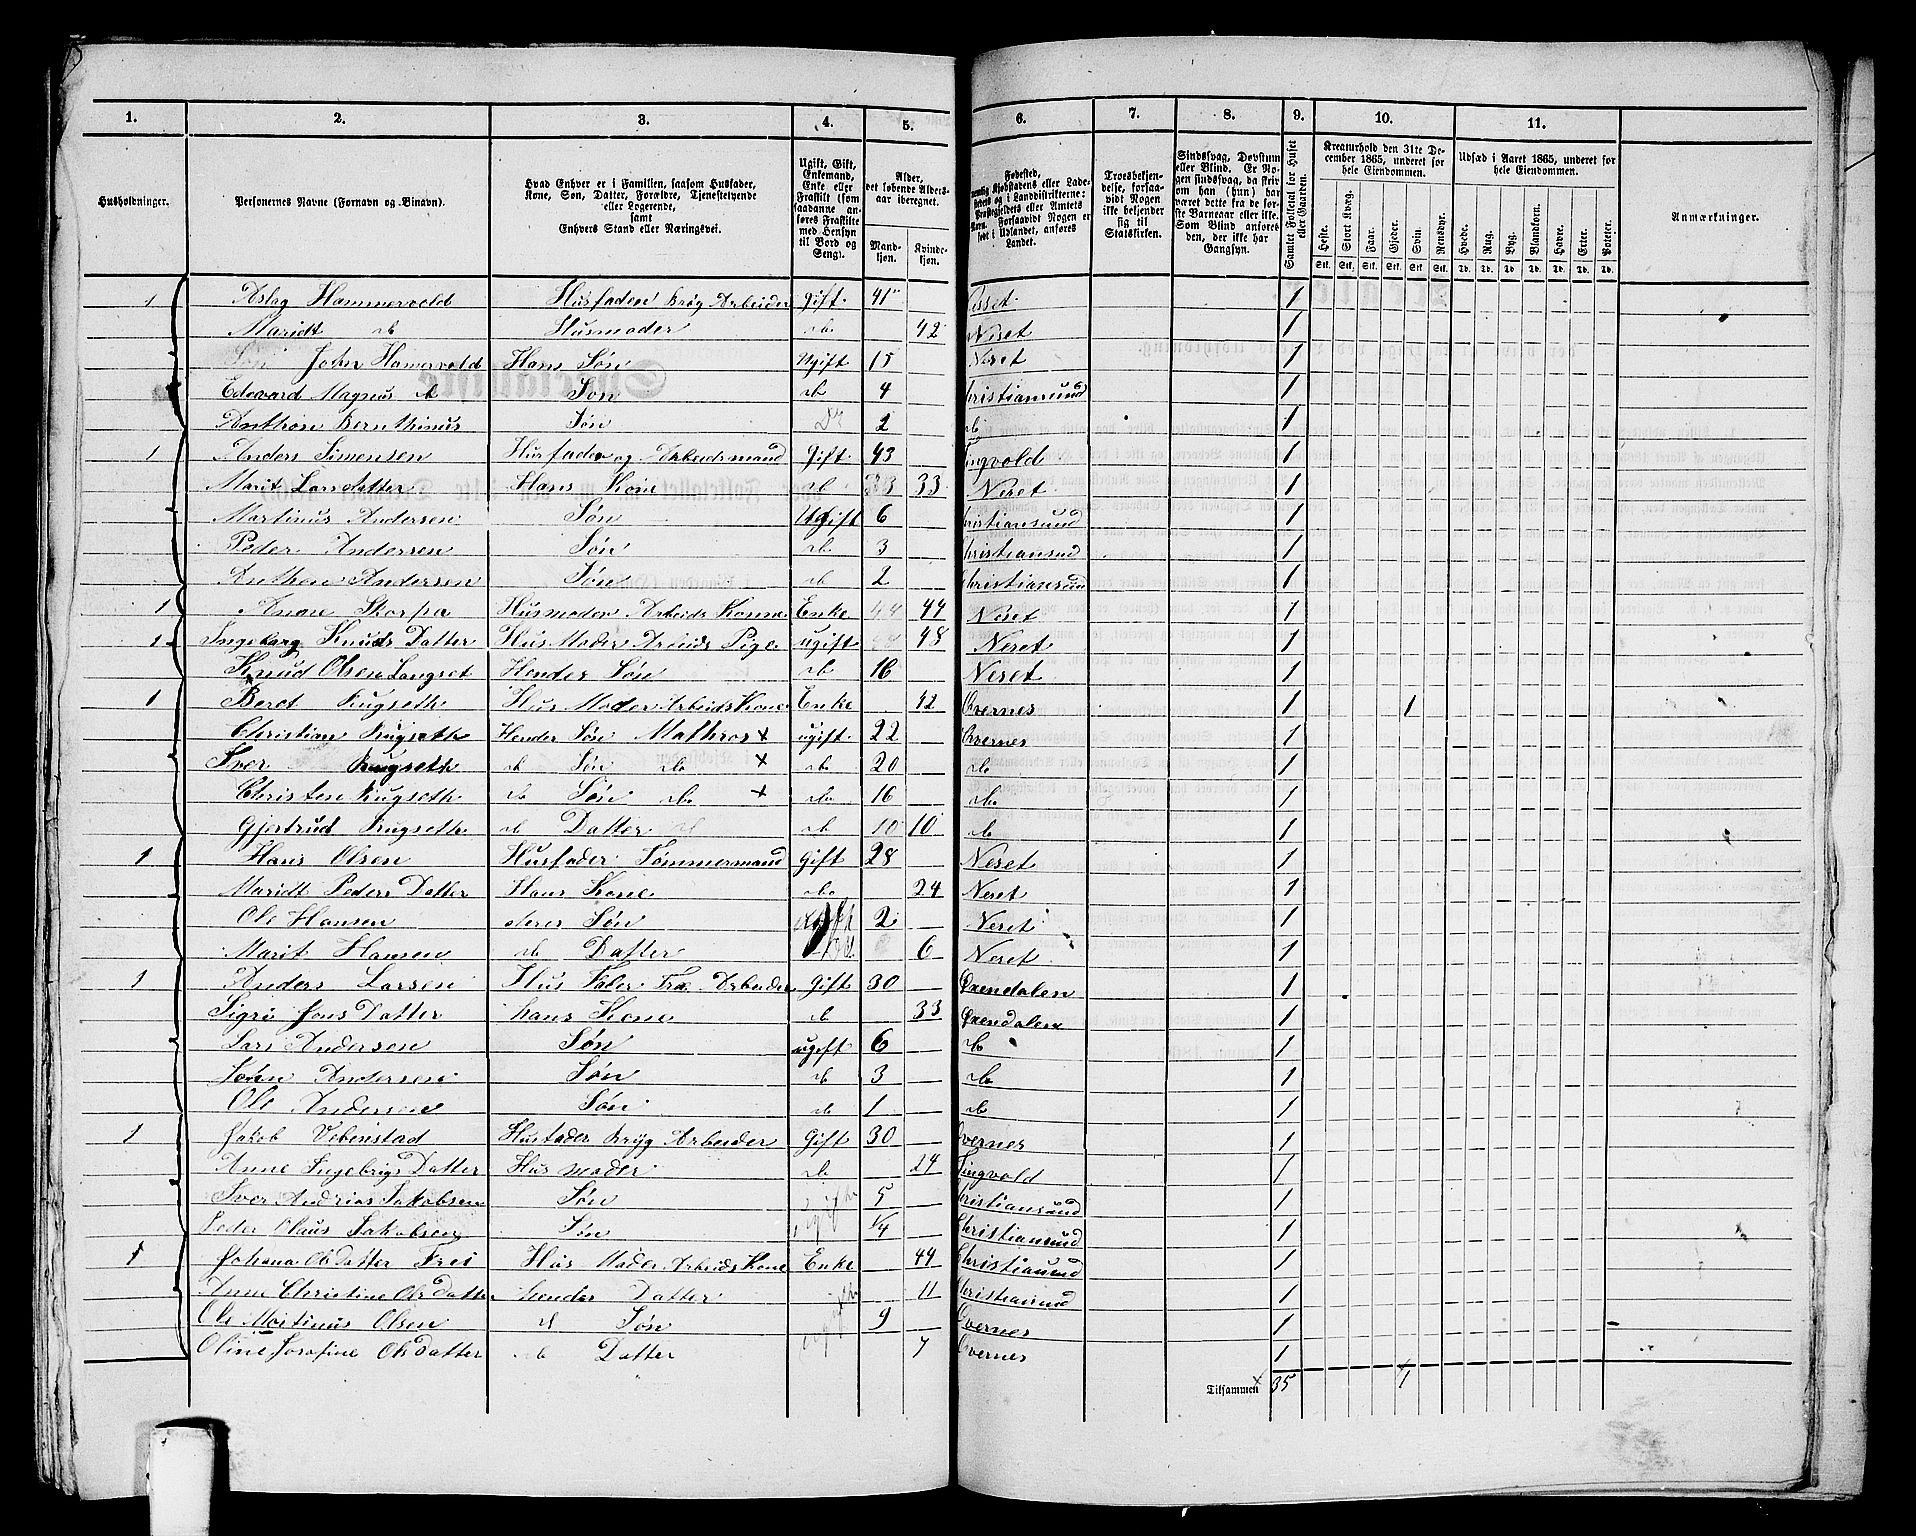 1. 2. 3. 4. 5. 6. 7. 8. 9. 10. 11.
Husholdninger.
Personernes Navne (Fornavn og Binavn).
Hvad Enhver er i Familien, saasom Husfader, Kone, Søn, Datter, Forældre, Tjenestetyende eller Logerende, samt Enhvers Stand eller Næringsvei.
Ugift, Gift, Enkemand, Enke eller Fraskilt (som saadanne anføres Fraskilte med Hensyn til Bord og Seng).
Alder, det løbende Alders-aar iberegnet.
Mand-kjøn. Kvinde-kjøn.
Fødested,
Troesbekjendelse, forsaavidt Nogen ikke bekjender sig til Statskirken.
Sindssvag, Døvstum eller Blind. Er Nogen sindssvag, da skriv om han (hun) har været dette fra de første Barneaar eller ikke. Som Blind anføres den, der ikke har Gangsyn.
Samlet Folketal for Huset eller Gaarden.
Kreaturhold den 31te December 1865, underet for hele Eiendommen.
Heste. Stort Kvæg. Faar. Gjeder. Svin. Rensdyr.
Udsæd i Aaret 1865, underet for hele Eiendommen.
Hvede. Rug. Byg. Blandkorn. Havre. Erter. Poteter.
Anmærkninger.
1 Aslag Hammervold Husfader Brøg Arbeider Gift 41 1
Maridt do Husmoder do 42 Neset 1
John Hamervold Hans Søn Ugift 15 Neset 1
Edevard Magnus do Søn do 4 Christiansund 1
Anthon Bernthinus Søn Do 2 do 1
1 Anders Simensen Husfader og Arbeidsmand Gift 43 Tingvold 1
Marit Larsdatter Hans Kone do 33 Neset 1
Martinus Andersen Søn Ugift 6 Christiansund 1
Peder Andersen Søn do 3 Christiansund 1
Anthon Andersen Søn do 2 Christiansund 1
1 Anne Skorpa Husmoder Arbeids Konne Enke 44 Neset 1
1 Ingeborg Knuds Datter Hus Moder Arbeids Pige ugift 48 Neset 1
Knud Olsen Langset Hender Søn do 16 Neset 1
1 Beret Rugseth Hus Moder Arbeids Kone Enke 42 Qvernes 1 1
Christian Rugseth Hender Søn Mathros x ugift 22 Qvernes 1
Iver Rugseth do Søn do x do 20 do 1
Christen Rugseth do Søn do x do 16 do 1
Gjertrud Rugseth do Datter do 10 do 1
1 Hans Olsen Husfader Tømmermand Gift 28 Neset 1
Maridt Peders Datter Hans Kone do 24 Neset 1
Ole Hansen deres Søn 2 Neset 1
Marit Hansen do Datter 6 Neset 1
1 Anders Larsen Hus Fader Træ Arbeider Gift 30 Øxendalen 1
Sigri Jons Datter hans Kone do 33 Øxendalen 1
Lars Andersen Søn ugift 6 do 1
John Andersen Søn do 3 do 1
Ole Andersen Søn do 1 do 1
1 Jakob Vebenstad Husfader Bryg Arbeider Gift 30 Qvernes 1
Anne Ingebrigs Datter Hus moder do 24 Tingvold 1
Iver Andrias Jakobsen Søn ugift 5 Christiansund 1
Peder Olaus Jakobsen Søn 1/4 Christiansund 1
1 Johana Ols Datter Frei Hus Moder Arbeids Kone Enke 44 Christiansund 1
Anne Christine Ols Datter hender Datter ugift 11 Christiansund 1
Ole Martinus Olsen do Søn 9 Qvernes 1
Oline Josefine Ols Datter do Datter 7 Qvernes 1
Tilsammen 35 1